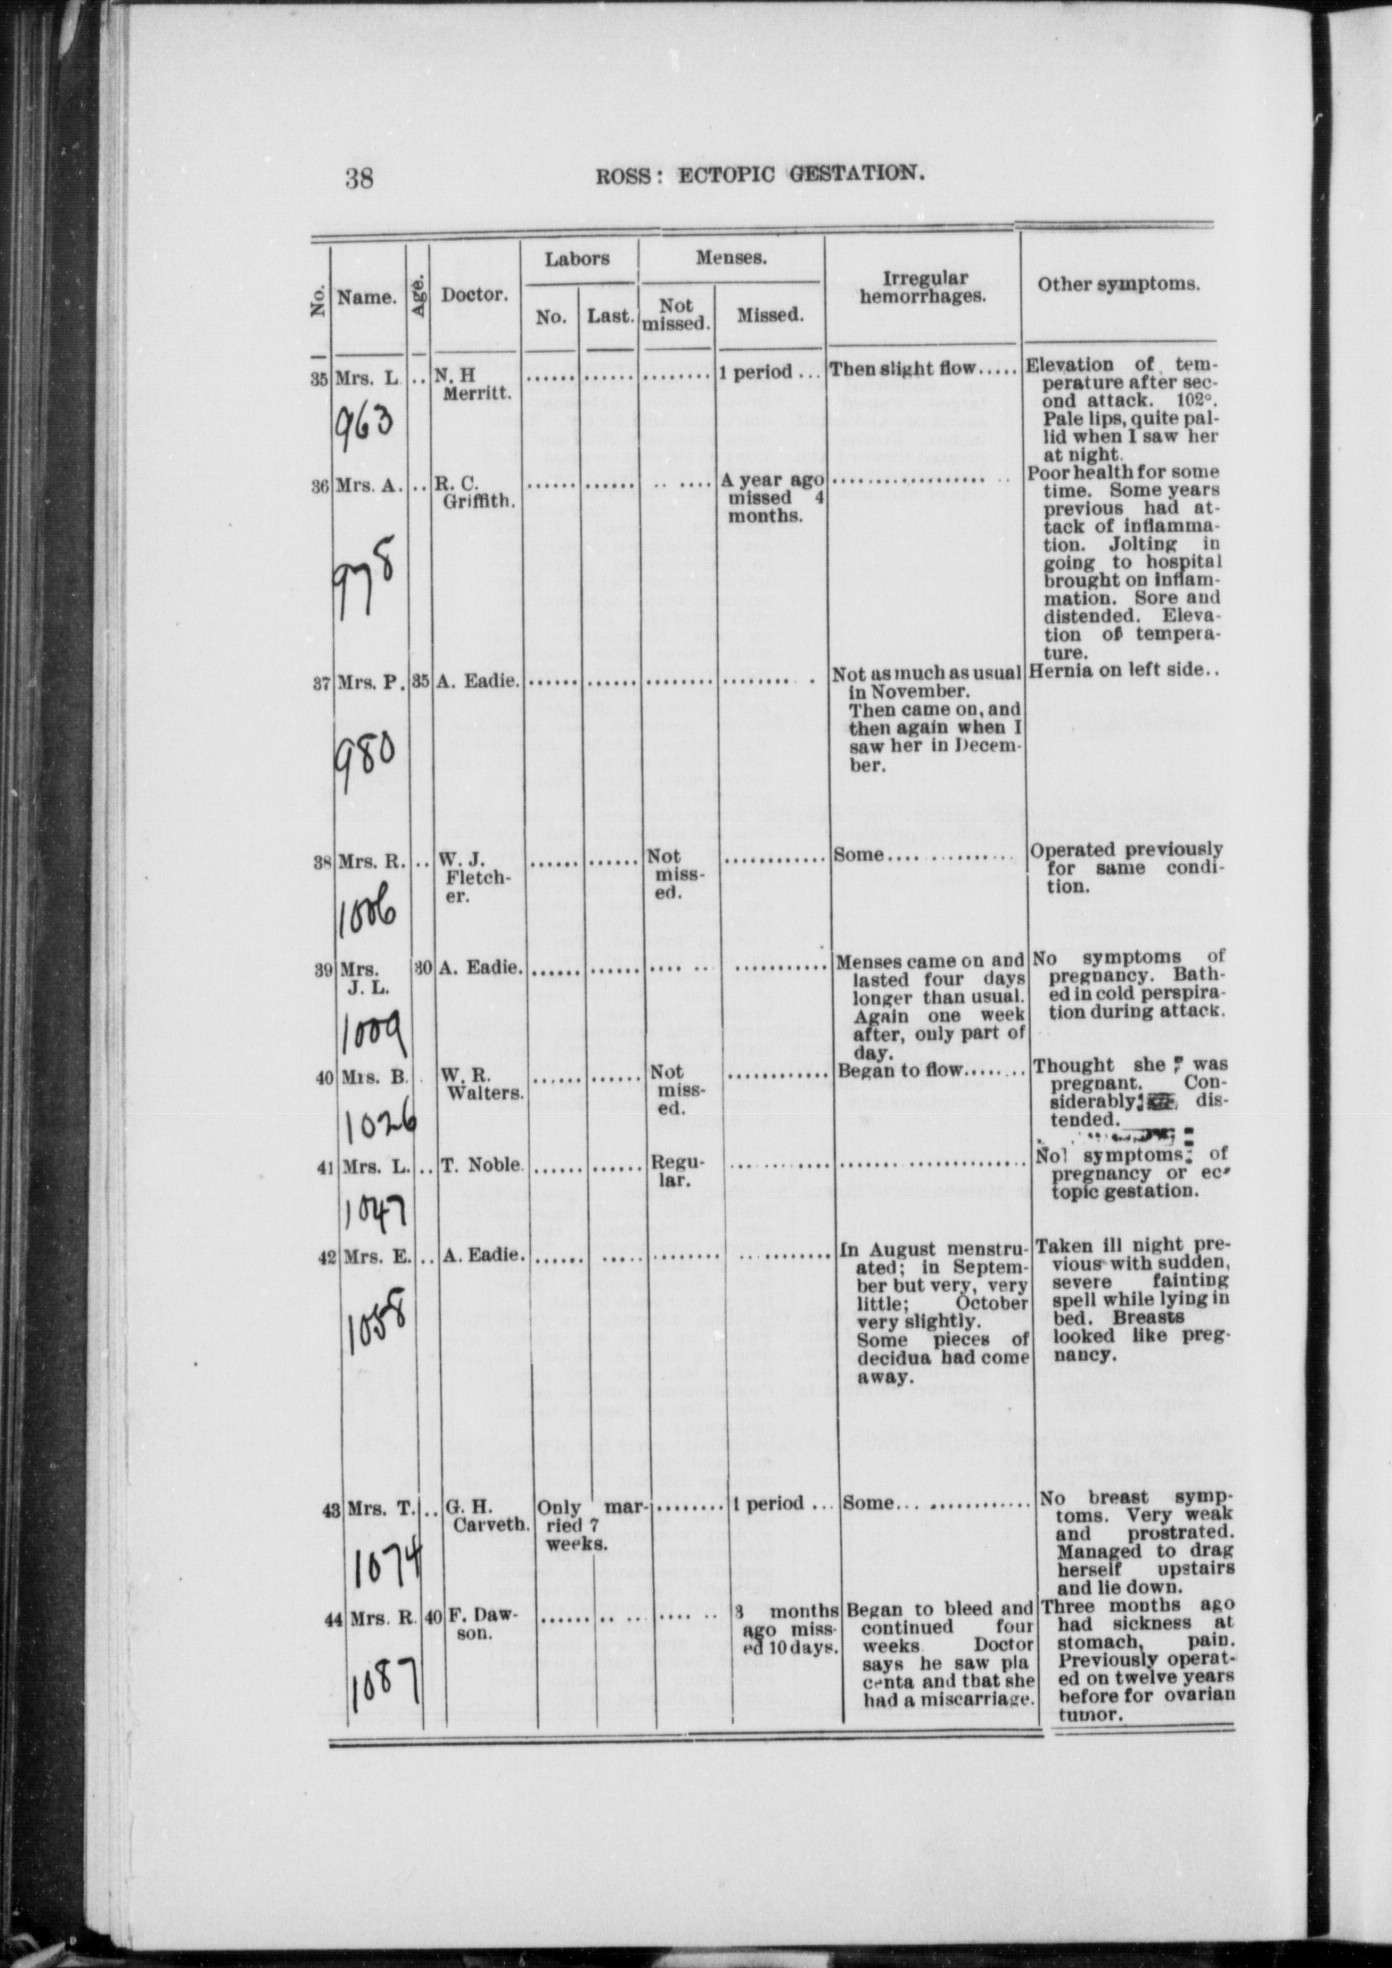 38
ROSS: ECTOPIC GESTATION.
No.
Name.
Age.
Doctor.
Labors
No.
Last.
Menses.
Not
missed.
Missed.
Irregular
hemorrhages.
Other symptoms.
35
Mrs. L.
..
N. H
Merritt.
......
......
........
1 period ...
Then slight flow.....
Elevation of tem-
perature after sec-
ond attack. 102°.
Pale lips, quite pal-
lid when I saw her
at night.
963
36
Mrs. A.
..
R. C.
Griffith.
......
......
.. ....
A year ago
missed 4
months.
.................. ..
Poor health for some
time. Some years
previous had at-
tack of inflamma-
tion. Jolting in
going to hospital
brought on inflam-
mation. Sore and
distended. Eleva-
tion of tempera-
ture.
978
37
Mrs. P.
35
A. Eadie.
......
......
........
........ .
Not as much as usual
in November.
Then came on, and
then again when I
saw her in Decem-
ber.
Hernia on left side..
980
38
Mrs. R.
..
W. J.
Fletch-
er.
......
......
Not
miss-
ed.
............
Some.... ............
Operated previously
for same condi-
tion.
1006
39
Mrs.
J. L.
30
A. Eadie.
......
......
.... ..
...........
Menses came on and
lasted four days
longer than usual.
Again one week
after, only part of
day.
No symptoms of
pregnancy. Bath-
ed in cold perspira-
tion during attack.
1009
40
Mrs. B.
.
W. R.
Walters.
......
......
Not
miss-
ed.
............
Began to flow........
Thought she was
pregnant. Con-
siderably dis-
tended.
1026
41
Mrs. L.
..
T. Noble.
......
......
Regu-
lar.
... .......
......................
No symptoms of
pregnancy or ec-
topic gestation.
1047
42
Mrs. E.
..
A. Eadie.
......
.....
........
. .........
In August menstru-
ated; in Septem-
ber but very, very
little; October
very slightly.
Some pieces of
decidua had come
away.
Taken ill night pre-
vious with sudden,
severe fainting
spell while lying in
bed. Breasts
looked like preg-
nancy.
1058
43
Mrs. T.
..
G. H.
Carveth.
Only mar-
ried 7
weeks.
........
1 period ...
Some... .............
No breast symp-
toms. Very weak
and prostrated.
Managed to drag
herself upstairs
and lie down.
1074
44
Mrs. R.
40
F. Daw-
son.
......
.. ...
.... ..
3 months
ago miss-
ed 10 days.
Began to bleed and
continued four
weeks. Doctor
says he saw pla
centa and that she
had a miscarriage.
Three months ago
had sickness at
stomach, pain.
Previously operat-
ed on twelve years
before for ovarian
tumor.
1087